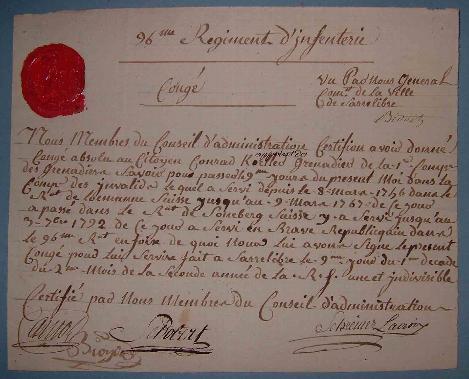 96me Regiment d'infenterie
Congé
Vu Par Nous General
Comt de la Ville
de Sarrelibre
Nous Membres du Conseil d'administration Certifion avoir donné
Congé absolu au Citoyen Conrad Grenadier de la 1re Compe
des Grenadiers Savoir pour passer 9me jours du present Moi dans la
Compe des invalids lequel a Servi depuis le 8 Mars 1766 dans le
Rt de Suisse jusqu'au 9 Mars 1767 de ce jour
a passe dans le Rt de Soneberg Suisse y a Servi jusqu'au
7bre 1792 de ce jour a Servi en Brave Republiquain dans
le 96me Rt en foire de quoi Nous Lui avons Signe le present
Congé pour lui Servire fait a Sarrelibre le 9me jour du 1er decade
du 2me Mois de la Seconde année de la R. f. une et indivisible
Certifié par Nous Membres du Conseil d'administration